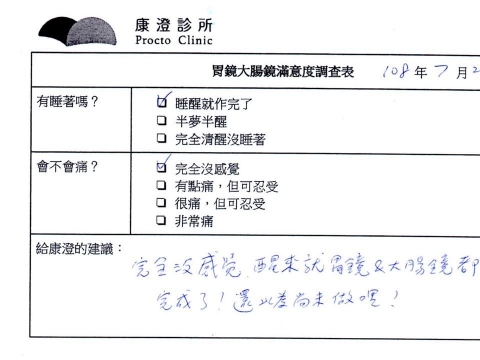 康澄診所
Procto Clinic
胃鏡大腸鏡滿意度調查表 108年7月2
有睡著嗎？
☑ 睡醒就作完了
❑ 半夢半醒
❑ 完全清醒沒睡著
會不會痛？
☑ 完全沒感覺
❑ 有點痛，但可忍受
❑ 很痛，但可忍受
❑ 非常痛
給康澄的建議：
完全沒感覺，醒來就胃鏡&大腸鏡都
完成了！還以為尚未做嘿！